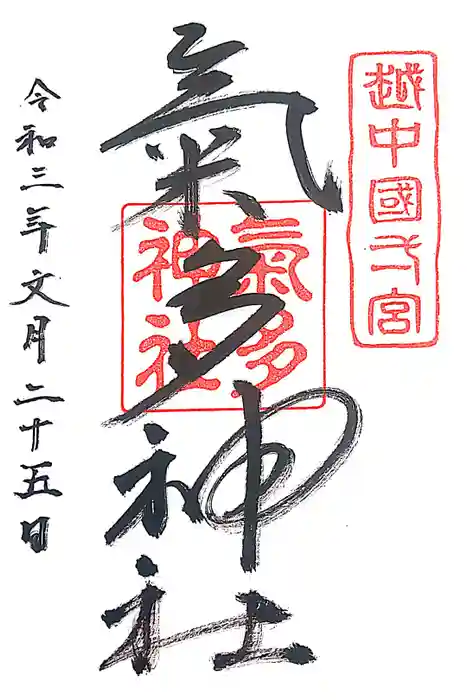 越中國一宮
氣多神社
氣多
神社
令和三年文月二十五日